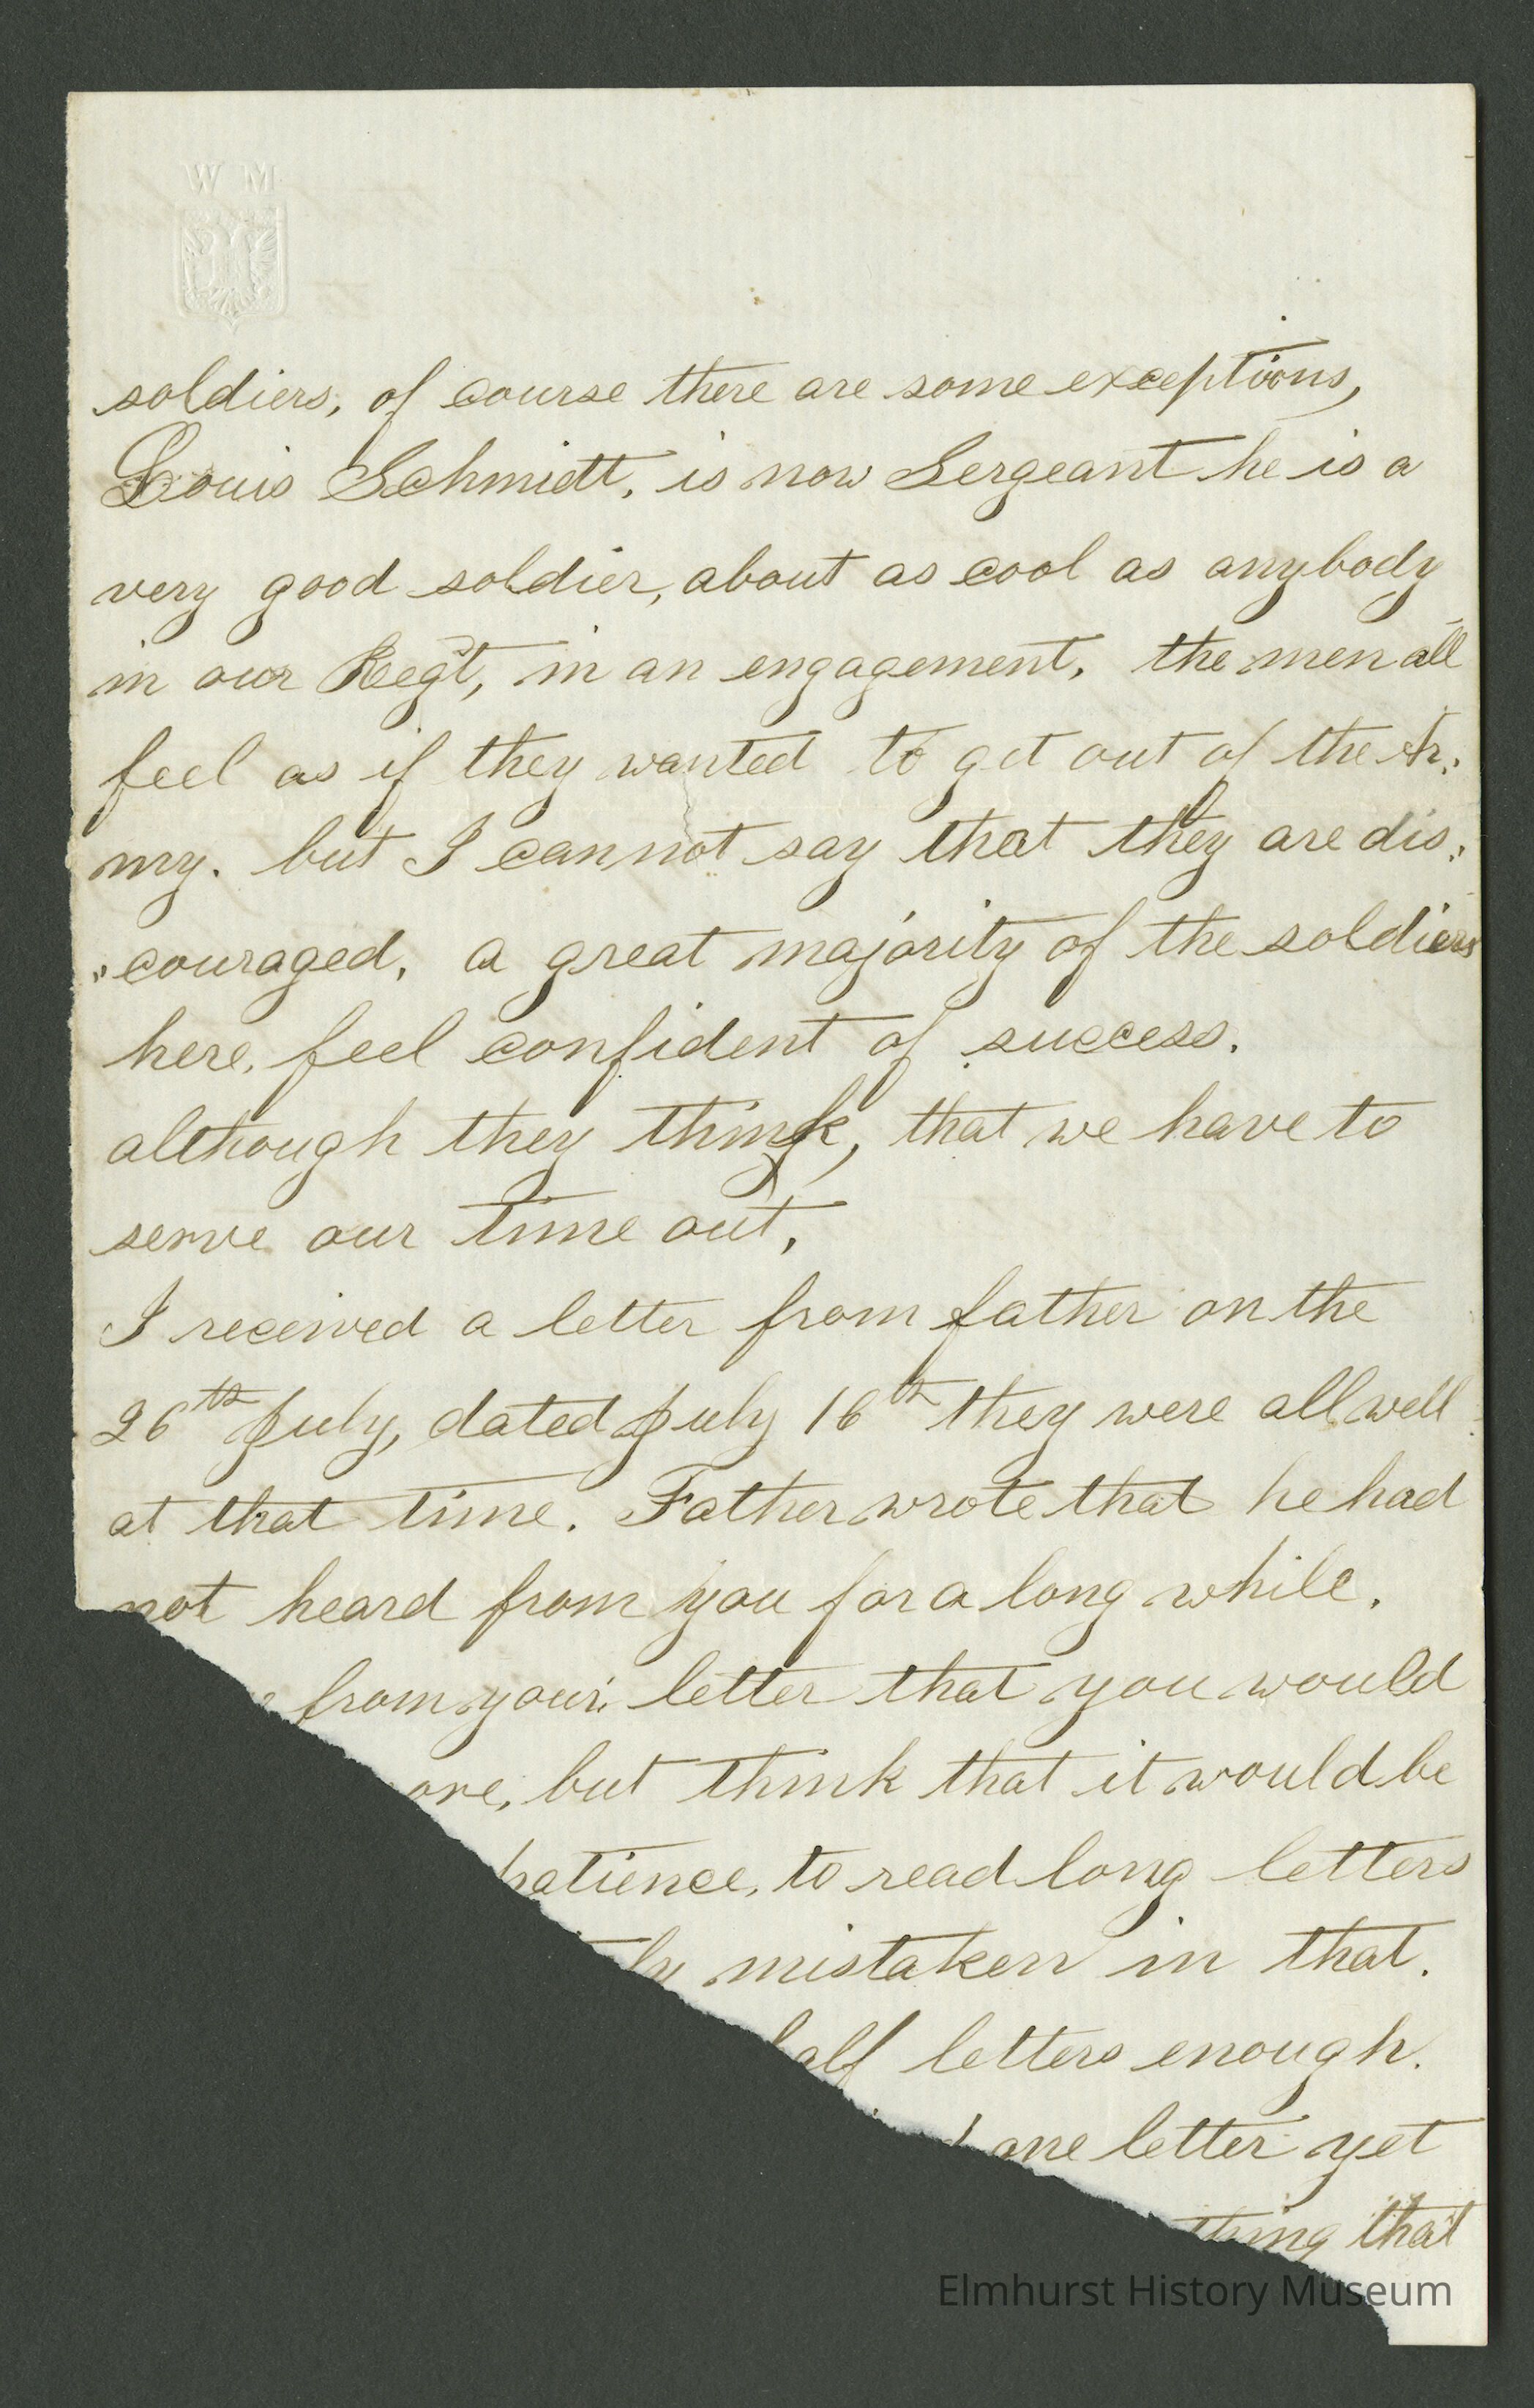 W M
soldiers, of course there are some exceptions,
Louis Schmidt, is now Sergeant he is a
very good soldier, about as cool as anybody
in our Regt, in an engagement. the men all
feel as if they wanted to get out of the Ar:
my. but I cannot say that they are dis:
:couraged. a great majority of the soldiers
here, feel confident of success.
although they think, that we have to
serve our time out,
I received a letter from father on the
26th July, dated July 16th they were all well
at that time. Father wrote that he had
not heard from you for a long while.
from your letter that you would
ore, but think that it would be
patience, to read long letters
ly mistaken in that.
half letters enough.
one letter yet
thing that
Elmhurst History Museum